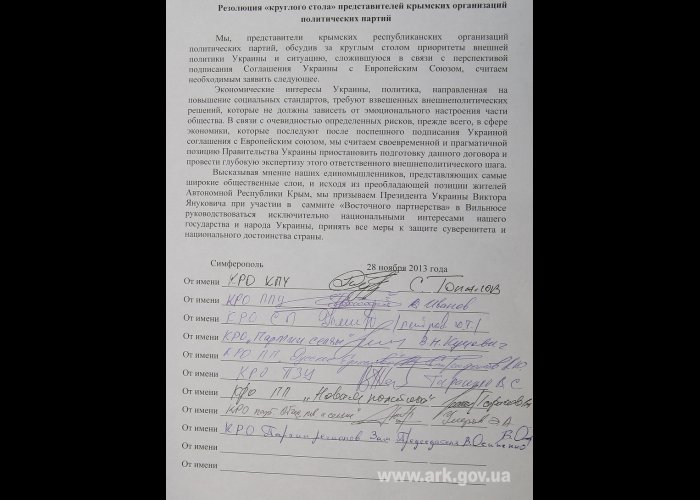 Резолюция «круглого стола» представителей крымских организаций
политических партий
Мы, представители крымских республиканских организаций
политических партий, обсудив за круглым столом приоритеты внешней
политики Украины и ситуацию, сложившуюся в связи с перспективой
подписания Соглашения Украины с Европейским Союзом, считаем
необходимым заявить следующее.
Экономические интересы Украины, политика, направленная на
повышение социальных стандартов, требуют взвешенных внешнеполитических
решений, которые не должны зависеть от эмоционального настроения части
общества. В связи с очевидностью определенных рисков, прежде всего, в сфере
экономики, которые последуют после поспешного подписания Украиной
соглашения с Европейским союзом, мы считаем своевременной и прагматичной
позицию Правительства Украины приостановить подготовку данного договора и
провести глубокую экспертизу этого ответственного внешнеполитического шага.
Высказывая мнение наших единомышленников, представляющих самые
широкие общественные слои, и исходя из преобладающей позиции жителей
Автономной Республики Крым, мы призываем Президента Украины Виктора
Януковича при участии в саммите «Восточного партнерства» в Вильнюсе
руководствоваться исключительно национальными интересами нашего
государства и народа Украины, принять все меры к защите суверенитета и
национального достоинства страны.
Симферополь 28 ноября 2013 года
От имени КРО КПУ
От имени КРО ППУ В. Иванов
От имени КРО СП
От имени КРО „Партии
От имени КРО ПП
От имени КРО ПЗУ В С.
От имени КРО ПП „Новая политика"
От имени КРО Э А
От имени КРО Партии регионов Зам Председателя В.
От имени
От имени
www.ark.gov.ua